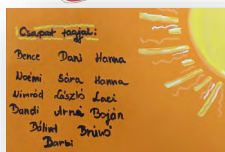 Csapat tagjai:
Bence Dani Hanna
Noémi Sára Hanna
Nimród László Laci
Dandi Arna Boján
Bálint Brúnó
Barbi